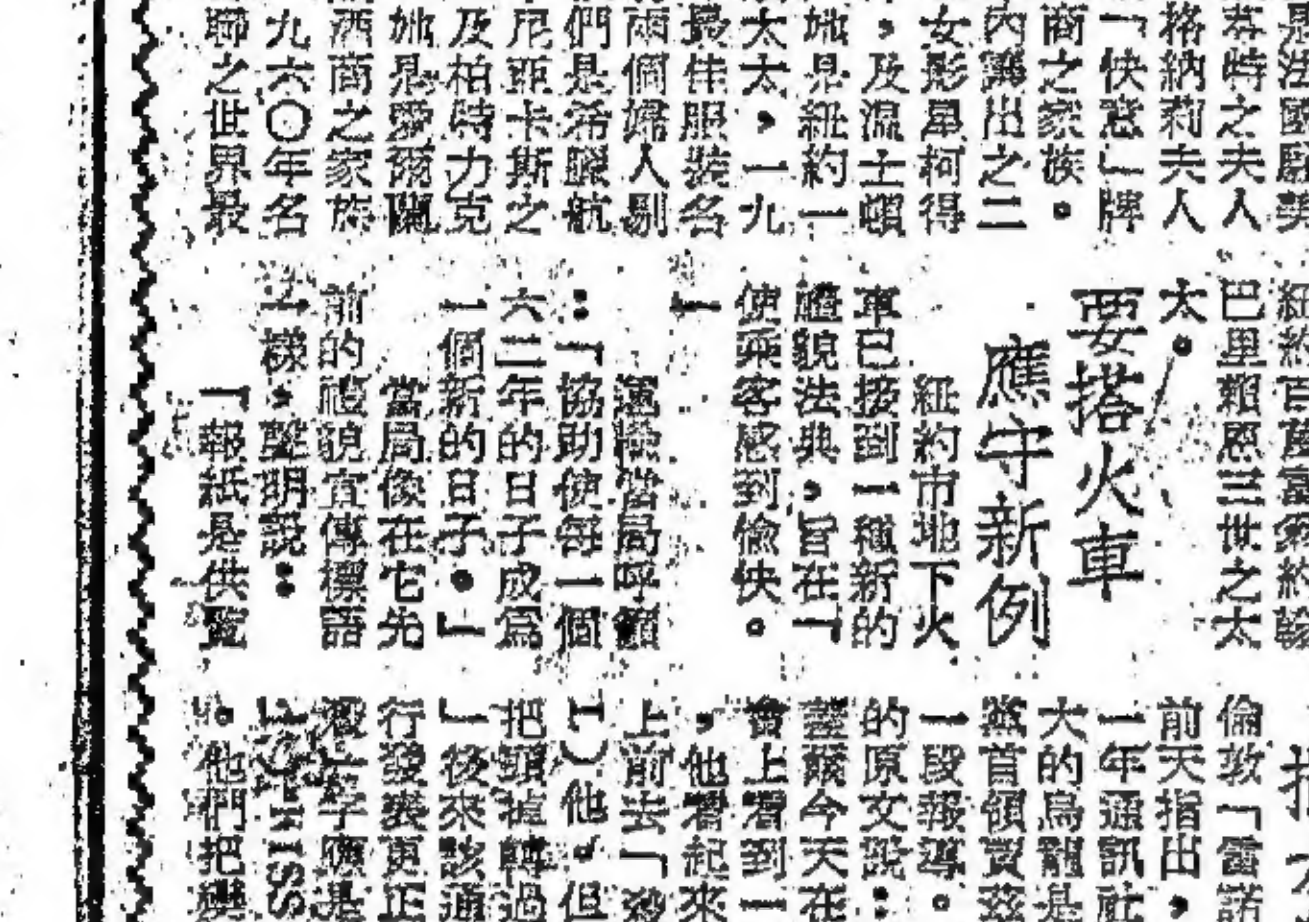 是法國駐美
特之夫人
格納莉夫人
「快意」牌
商之家族。
內選出之二
女影星柯得
,及溫士頓
她是紐約一
太太,一九
最佳服裝名
兩個婦人則
們是希臘航
尼亞卡斯之
及柏特力克
她是愛爾蘭
酒商之家族
九六〇年名
聯之世界最
紐約百萬富翁約翰
巴里賴恩三世之太
太。
要搭火車
應守新例
紐約市地下火
車已接到一種新的
禮貌法典,旨在「
使乘客感到愉快。
」
運輸當局呼籲
:「協助使每一個
六二年的日子成爲
一個新的日子。」
當局像在它先
前的禮貌宣傳標語
一樣,聲明說:
「報紙是供覽
倫敦「雷諾
前天指出,
一年通訊社
大的烏龍是
黨首領賈茲
一段報導。
的原文說:
爾今天在
會上看到一
,他看起來
上前去「吻
他。但
把頭掉轉過
」後來該通
行發表更正
字應是
HISS
。他們把